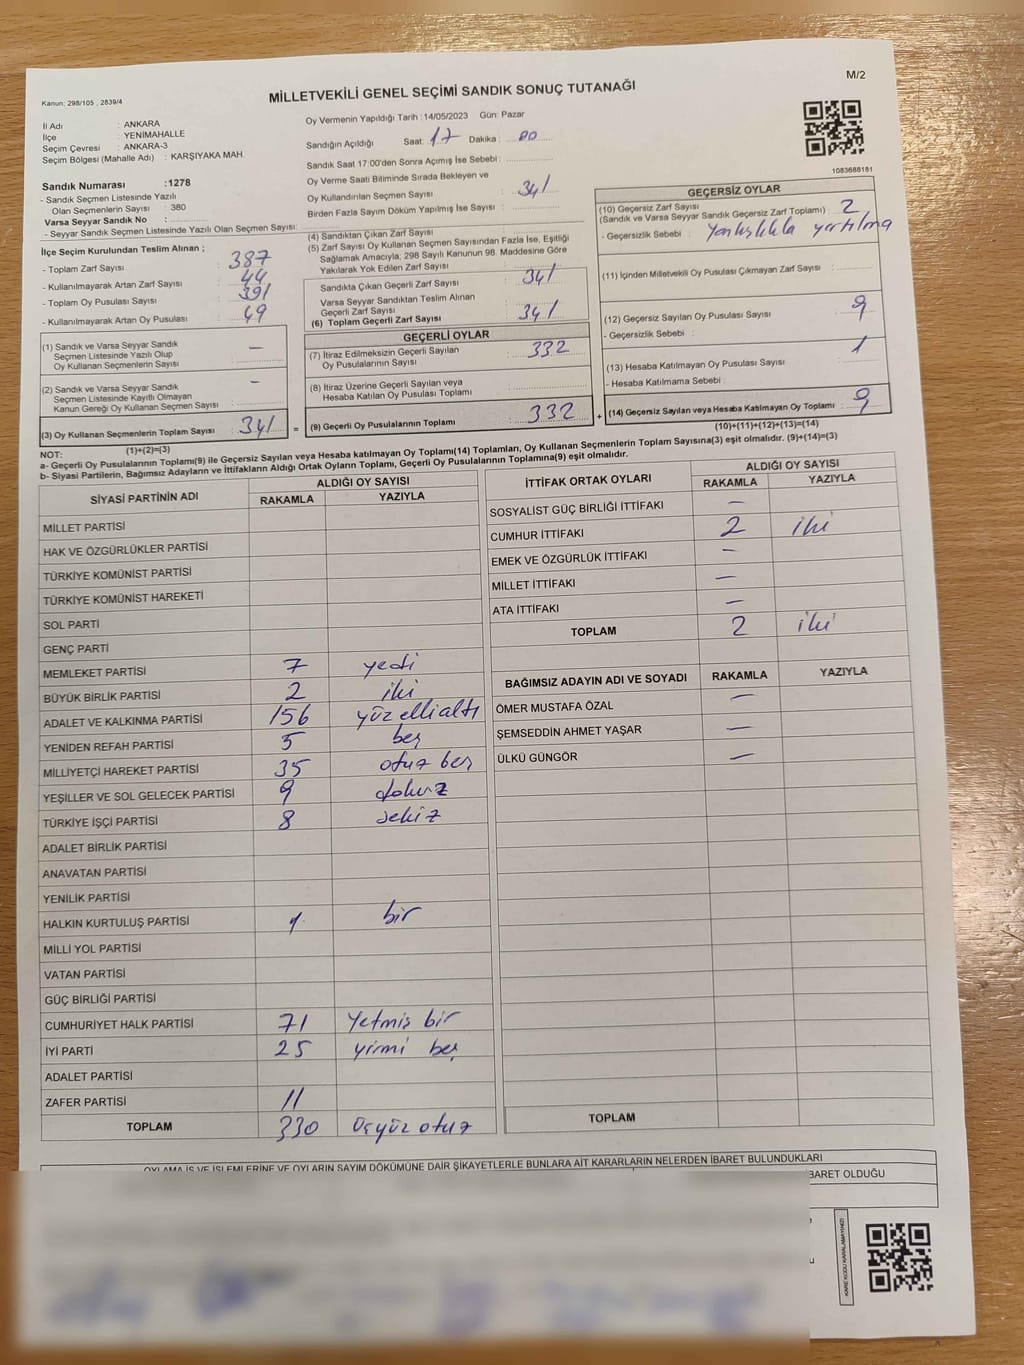 M/2
Kanun: 298/105 , 2839/4
MİLLETVEKİLİ GENEL SEÇİMİ SANDIK SONUÇ TUTANAĞI
İl Adı : ANKARA
İlçe : YENİMAHALLE
Seçim Çevresi : ANKARA-3
Seçim Bölgesi (Mahalle Adı) : KARŞIYAKA MAH.
Sandık Numarası :1278
- Sandık Seçmen Listesinde Yazılı
Olan Seçmenlerin Sayısı : 380
Varsa Seyyar Sandık No :
- Seyyar Sandık Seçmen Listesinde Yazılı Olan Seçmen Sayısı:
Oy Vermenin Yapıldığı Tarih :14/05/2023 Gün: Pazar
Sandığın Açıldığı Saat: 17 Dakika : 00
Sandık Saat 17:00'den Sonra Açımış İse Sebebi :
Oy Verme Saati Bitiminde Sırada Bekleyen ve
Oy Kullandırılan Seçmen Sayısı : 341
Birden Fazla Sayım Döküm Yapılmış İse Sayısı :
1083688181
İlçe Seçim Kurulundan Teslim Alınan ;
- Toplam Zarf Sayısı : 387
- Kullanılmayarak Artan Zarf Sayısı : 44
- Toplam Oy Pusulası Sayısı : 391
- Kullanılmayarak Artan Oy Pusulası : 49
(1) Sandık ve Varsa Seyyar Sandık
Seçmen Listesinde Yazılı Olup
Oy Kullanan Seçmenlerin Sayısı : –
(2) Sandık ve Varsa Seyyar Sandık
Seçmen Listesinde Kayıtlı Olmayan
Kanun Gereği Oy Kullanan Seçmen Sayısı : –
(3) Oy Kullanan Seçmenlerin Toplam Sayısı : 341
(1)+(2)=(3)
(4) Sandıktan Çıkan Zarf Sayısı
(5) Zarf Sayısı Oy Kullanan Seçmen Sayısından Fazla İse, Eşitliği
Sağlamak Amacıyla; 298 Sayılı Kanunun 98. Maddesine Göre
Yakılarak Yok Edilen Zarf Sayısı :
Sandıkta Çıkan Geçerli Zarf Sayısı : 341
Varsa Seyyar Sandıktan Teslim Alınan
Geçerli Zarf Sayısı :
(6) Toplam Geçerli Zarf Sayısı : 341
GEÇERLİ OYLAR
(7) İtiraz Edilmeksizin Geçerli Sayılan
Oy Pusulalarının Sayısı : 332
(8) İtiraz Üzerine Geçerli Sayılan veya
Hesaba Katılan Oy Pusulası Toplamı :
= (9) Geçerli Oy Pusulalarının Toplamı : 332 +
GEÇERSİZ OYLAR
(10) Geçersiz Zarf Sayısı
(Sandık ve Varsa Seyyar Sandık Geçersiz Zarf Toplamı) : 2
- Geçersizlik Sebebi : Yanlışlıkla yırtılma
(11) İçinden Milletvekili Oy Pusulası Çıkmayan Zarf Sayısı :
(12) Geçersiz Sayılan Oy Pusulası Sayısı : 9
- Geçersizlik Sebebi :
(13) Hesaba Katılmayan Oy Pusulası Sayısı : 1
- Hesaba Katılmama Sebebi :
(14) Geçersiz Sayılan veya Hesaba Katılmayan Oy Toplamı : 9
(10)+(11)+(12)+(13)=(14)
NOT:
a- Geçerli Oy Pusulalarının Toplamı(9) ile Geçersiz Sayılan veya Hesaba Katılmayan Oy Toplamı(14) Toplamları, Oy Kullanan Seçmenlerin Toplam Sayısına(3) eşit olmalıdır. (9)+(14)=(3)
b- Siyasi Partilerin, Bağımsız Adayların ve İttifakların Aldığı Ortak Oyların Toplamı, Geçerli Oy Pusulalarının Toplamına(9) eşit olmalıdır.
SİYASİ PARTİNİN ADI ALDIĞI OY SAYISI
RAKAMLA YAZIYLA
MİLLET PARTİSİ
HAK VE ÖZGÜRLÜKLER PARTİSİ
TÜRKİYE KOMÜNİST PARTİSİ
TÜRKİYE KOMÜNİST HAREKETİ
SOL PARTİ
GENÇ PARTİ
MEMLEKET PARTİSİ 7 yedi
BÜYÜK BİRLİK PARTİSİ 2 iki
ADALET VE KALKINMA PARTİSİ 156 yüz elli altı
YENİDEN REFAH PARTİSİ 5 beş
MİLLİYETÇİ HAREKET PARTİSİ 35 otuz beş
YEŞİLLER VE SOL GELECEK PARTİSİ 9 dokuz
TÜRKİYE İŞÇİ PARTİSİ 8 sekiz
ADALET BİRLİK PARTİSİ
ANAVATAN PARTİSİ
YENİLİK PARTİSİ
HALKIN KURTULUŞ PARTİSİ 1 bir
MİLLİ YOL PARTİSİ
VATAN PARTİSİ
GÜÇ BİRLİĞİ PARTİSİ
CUMHURİYET HALK PARTİSİ 71 Yetmiş bir
İYİ PARTİ 25 yirmi beş
ADALET PARTİSİ
ZAFER PARTİSİ 11
TOPLAM 330 üçyüz otuz
İTTİFAK ORTAK OYLARI ALDIĞI OY SAYISI
RAKAMLA YAZIYLA
SOSYALİST GÜÇ BİRLİĞİ İTTİFAKI –
CUMHUR İTTİFAKI 2 iki
EMEK VE ÖZGÜRLÜK İTTİFAKI –
MİLLET İTTİFAKI –
ATA İTTİFAKI –
TOPLAM 2 iki
BAĞIMSIZ ADAYIN ADI VE SOYADI RAKAMLA YAZIYLA
ÖMER MUSTAFA ÖZAL –
ŞEMSEDDİN AHMET YAŞAR –
ÜLKÜ GÜNGÖR –
TOPLAM
OYLAMA İŞ VE İŞLEMLERİNE VE OYLARIN SAYIM DÖKÜMÜNE DAİR ŞİKAYETLERLE BUNLARA AİT KARARLARIN NELERDEN İBARET BULUNDUKLARI
BARET OLDUĞU
KARE KODU KARALAMAYINIZ!